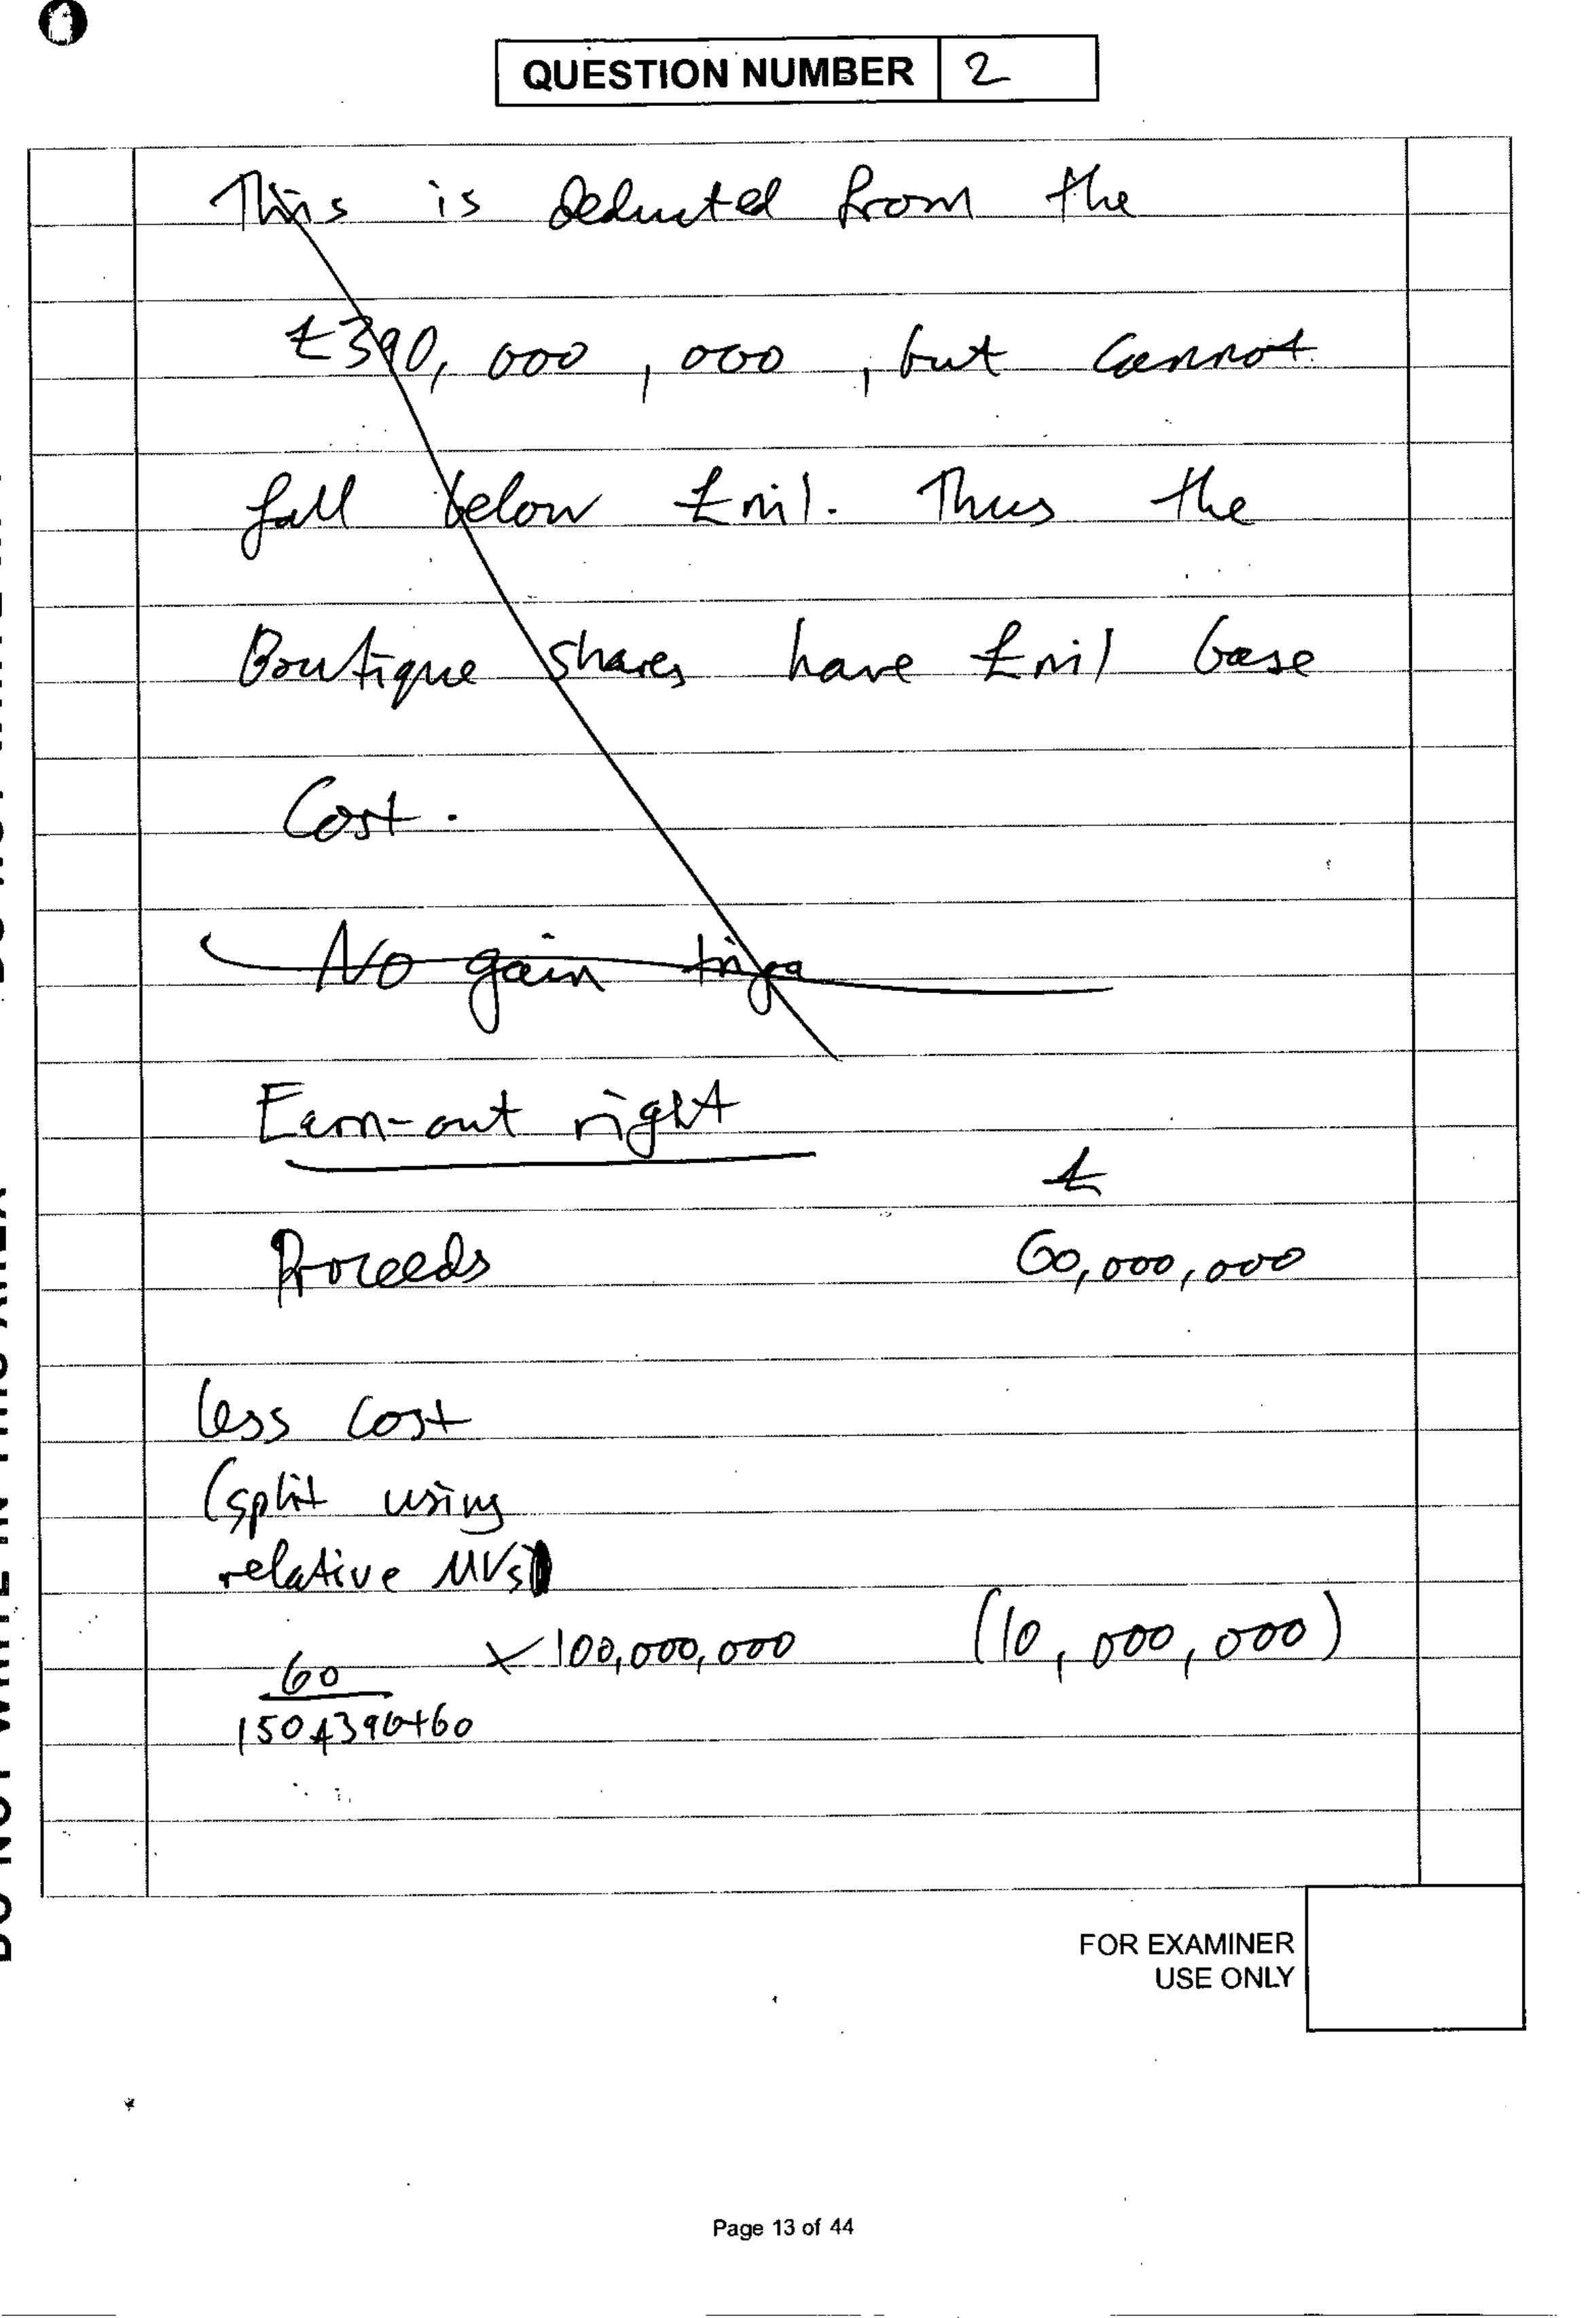 QUESTION NUMBER 2
This is deducted from the
£390,000,000, but cannot
fall below £nil. Thus the
Boutique shares have £nil base
Cost.
No gain trigg
Earn-out right
£
Proceeds 60,000,000
less cost
(split using
relative MVs)
60 × 100,000,000 (10,000,000)
150+390+60
FOR EXAMINER
USE ONLY
Page 13 of 44